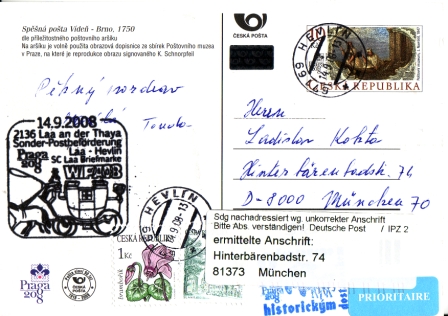 Spěšná pošta Vídeň - Brno, 1750
dle příležitostného poštovního aršíku
Na aršíku je volně použita obrazová dopisnice ze sbírek Poštovního muzea
v Praze, na které je reprodukce obrazu signovaného K. Schnorpfeil
ČESKÁ POŠTA
HEVLÍN
671 69
ČESKÁ REPUBLIKA
Pěkný pozdrav
14.9.2008
2136 Laa an der Thaya
Sonder-Postbeförderung
Laa - Hevlín
SC Laa Briefmarke
Praga
2008
WI-208
Herrn
Ladislav
Hinterbärenbadstr. 74
D-8000 München 70
HEVLÍN
ČESKÁ REPUBLIKA
1 Kč
bramborík
Sdg nachadressiert wg. unkorrekter Anschrift
Bitte Abs. verständigen! Deutsche Post / IPZ 2
ermittelte Anschrift:
Hinterbärenbadstr. 74
81373 München
Praga
2008
ČESKÁ POŠTA
historickým
PRIORITAIRE